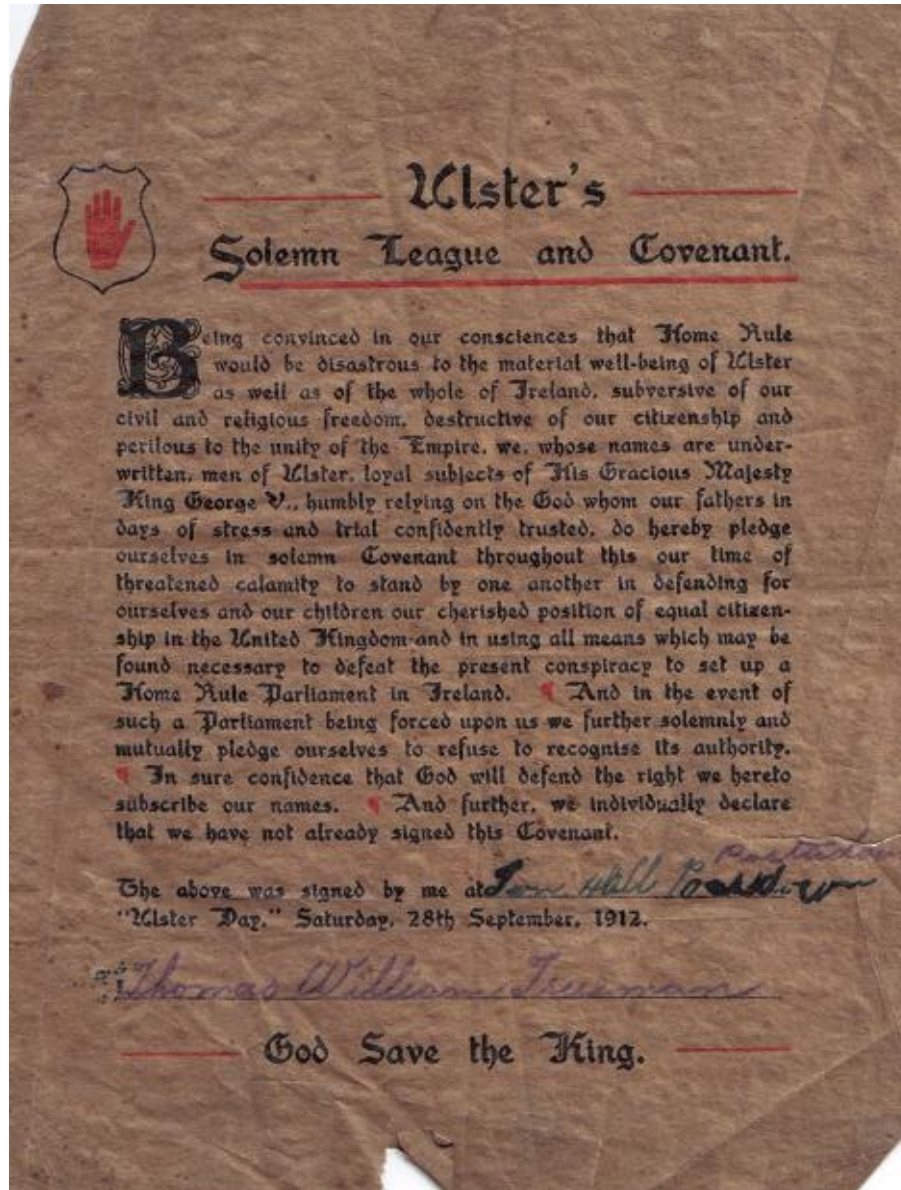 Ulster's
Solemn League and Covenant.
Being convinced in our consciences that Home Rule
would be disastrous to the material well-being of Ulster
as well as of the whole of Ireland, subversive of our
civil and religious freedom, destructive of our citizenship and
perilous to the unity of the Empire, we, whose names are under-
written, men of Ulster, loyal subjects of His Gracious Majesty
King George V., humbly relying on the God whom our fathers in
days of stress and trial confidently trusted, do hereby pledge
ourselves in solemn Covenant throughout this our time of
threatened calamity to stand by one another in defending for
ourselves and our children our cherished position of equal citizen-
ship in the United Kingdom and in using all means which may be
found necessary to defeat the present conspiracy to set up a
Home Rule Parliament in Ireland. ¶ And in the event of
such a Parliament being forced upon us we further solemnly and
mutually pledge ourselves to refuse to recognise its authority.
¶ In sure confidence that God will defend the right we hereto
subscribe our names. ¶ And further, we individually declare
that we have not already signed this Covenant.
Portadown
The above was signed by me at Town Hall Portadown
"Ulster Day," Saturday, 28th September, 1912.
Thomas William Trueman
God Save the King.